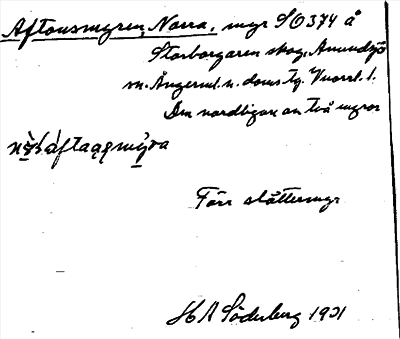 Aftonsmyren, Norra, myr SO 374 å
Storborgaren skog, Anundsjö
sn. Ångerml. n. doms tg. Vuorrl. 1.
Den nordligare av två myror
aftaqqmýra
Förr slåttermyr
H A Söderberg 1931